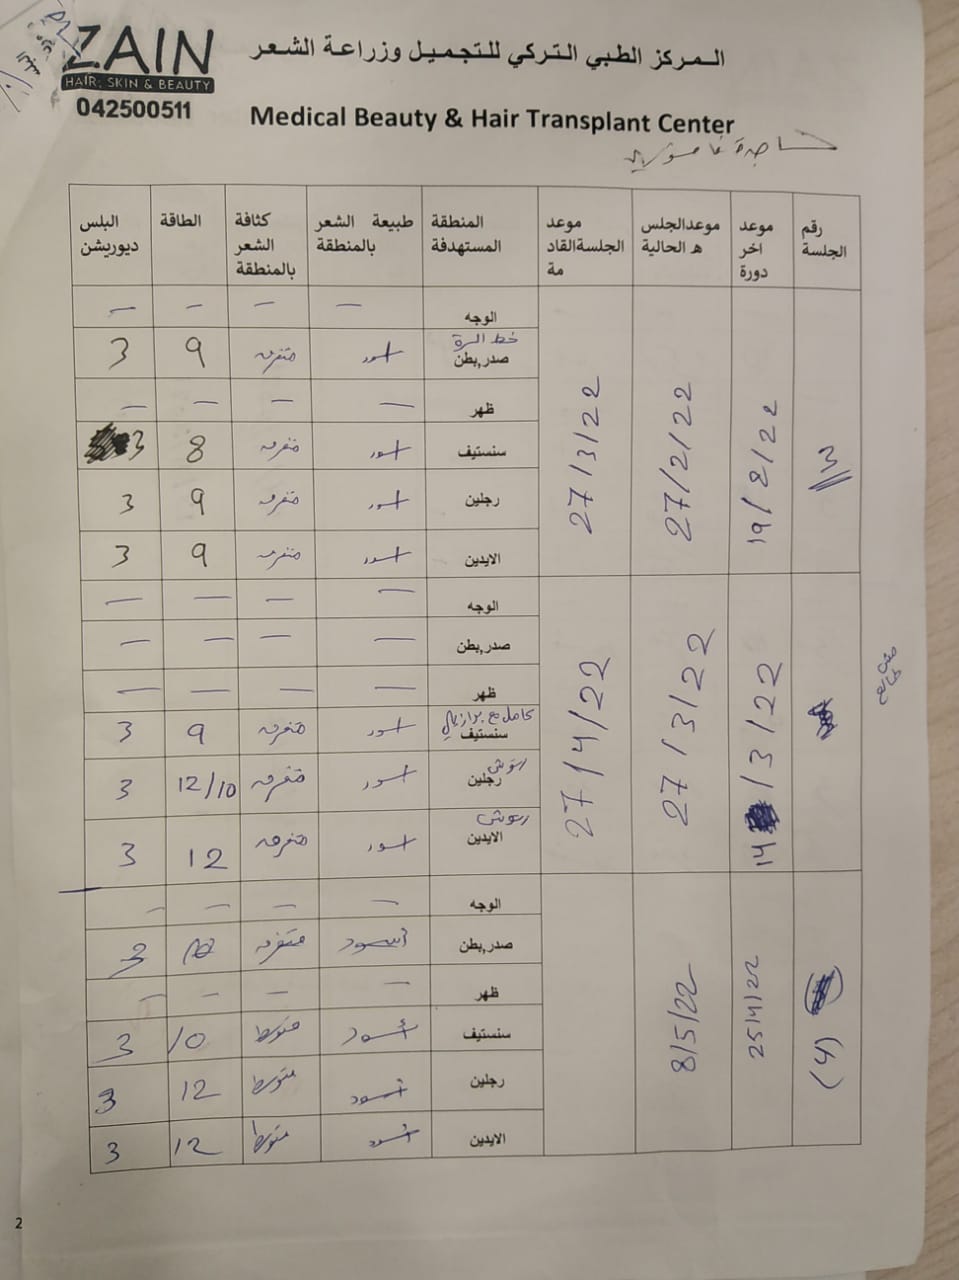 ZAIN
HAIR, SKIN & BEAUTY
042500511
المركز الطبي التركي للتجميل وزراعة الشعر
Medical Beauty & Hair Transplant Center
رقم الجلسة | موعد اخر دورة | موعدالجلس ه الحالية | موعد الجلسةالقاد مة | المنطقة المستهدفة | طبيعة الشعر بالمنطقة | كثافة الشعر بالمنطقة | الطاقة | البلس ديوريشن
3 | 19/2/22 | 27/2/22 | 27/3/22
الوجه | — | — | — | —
خط السرة
صدر,بطن | اسود | متفرقه | 9 | 3
ظهر | — | — | — | —
سنستيف | اسود | متفرقه | 8 | 3
رجلين | اسود | متفرقه | 9 | 3
الايدين | اسود | متفرقه | 9 | 3
14/3/22 | 27/3/22 | 27/4/22
الوجه | — | — | — | —
صدر,بطن | — | — | — | —
ظهر | — | — | — | —
كامل مع برازيلي
سنستيف | اسود | متفرقه | 9 | 3
رتوش
رجلين | اسود | متفرقه | 12/10 | 3
رتوش
الايدين | اسود | متفرقه | 12 | 3
(4) | 25/4/22 | 8/5/22
الوجه | — | — | — | —
صدر,بطن | أسود | متفرقه | 3
ظهر | — | — | — | —
سنستيف | أسود | متوسط | 10 | 3
رجلين | أسود | متوسط | 12 | 3
الايدين | أسود | متوسط | 12 | 3
2